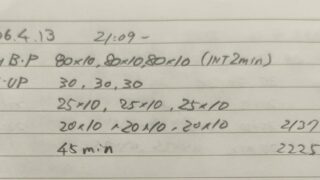 06.4.13 21:09-
B.P 80×10, 80×10, 80×10 (INT 2min)
UP 30, 30, 30
25×10, 25×10, 25×10
20×10, 20×10, 20×10 2137
45 min 2225